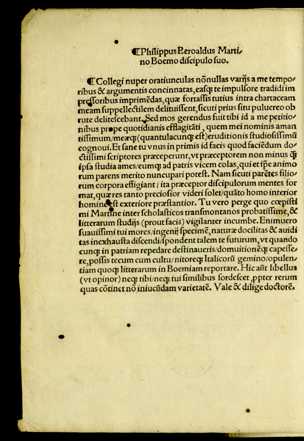 ¶Philippus Beroaldus Marti-
no Boemo discipulo suo.
¶Collegi nuper oratiunculas nõnullas varijs a me tempo
ribus & argumentis concinnatas, easq; te impulsore tradidi im
pressoribus imprimẽdas, quæ fortassis tutius intra chartaceam
meam suppellectilem delinuissent, sicuti prius situ puluereo ob
rute delitescebant. Sed mos gerendus fuit tibi id a me petitio
nibus prope quotidianis efflagitãti, quem mei nominis aman
tissimum, meæq; (quantulacunq; est) eruditionis studiosissimũ
cognoui. Et sane tu vnus in primis id facis quod faciẽdum do
ctissimi scriptores præcepertunt, vt præceptorem non minus q̃
ipsa studia ames, eumq; ad patris vicem colas, qui etsi pẽ animo
rum parens merito nuncupari potest. Nam sicuti parẽtes filio
rum corpora effigiant: ita præceptor discipulorum mentes for
mat, quæ res tanto preciosior videri solet: quãto homo interior
homine est exteriore præstantior. Tu vero perge quo cœpisti
mi Martine inter scholasticos transmontanos probatissime, &
litterarum studijs (prout facis) vigilanter incumbe. Enimuero
suauissimi tui mores, ingeniũ specimẽ, naturæ docilitas & auidi
tas inexhausta discendi, spondent talem te futurum, vt quando
cunq; in patriam repedare destinaueris domuitionẽq; capesse-
re, possis tecum cum cultu, nitoreq; Italicorũ gemino, opulen-
tiam quoq; litterarum in Boemiam reportare. Hic aũt libellus
(vt opinor) neq; tibi neq; tui similibus sordescet, ppter rerum
quas cõtinet nõ iniucũdam varietatẽ. Vale & dilige doctorẽ.